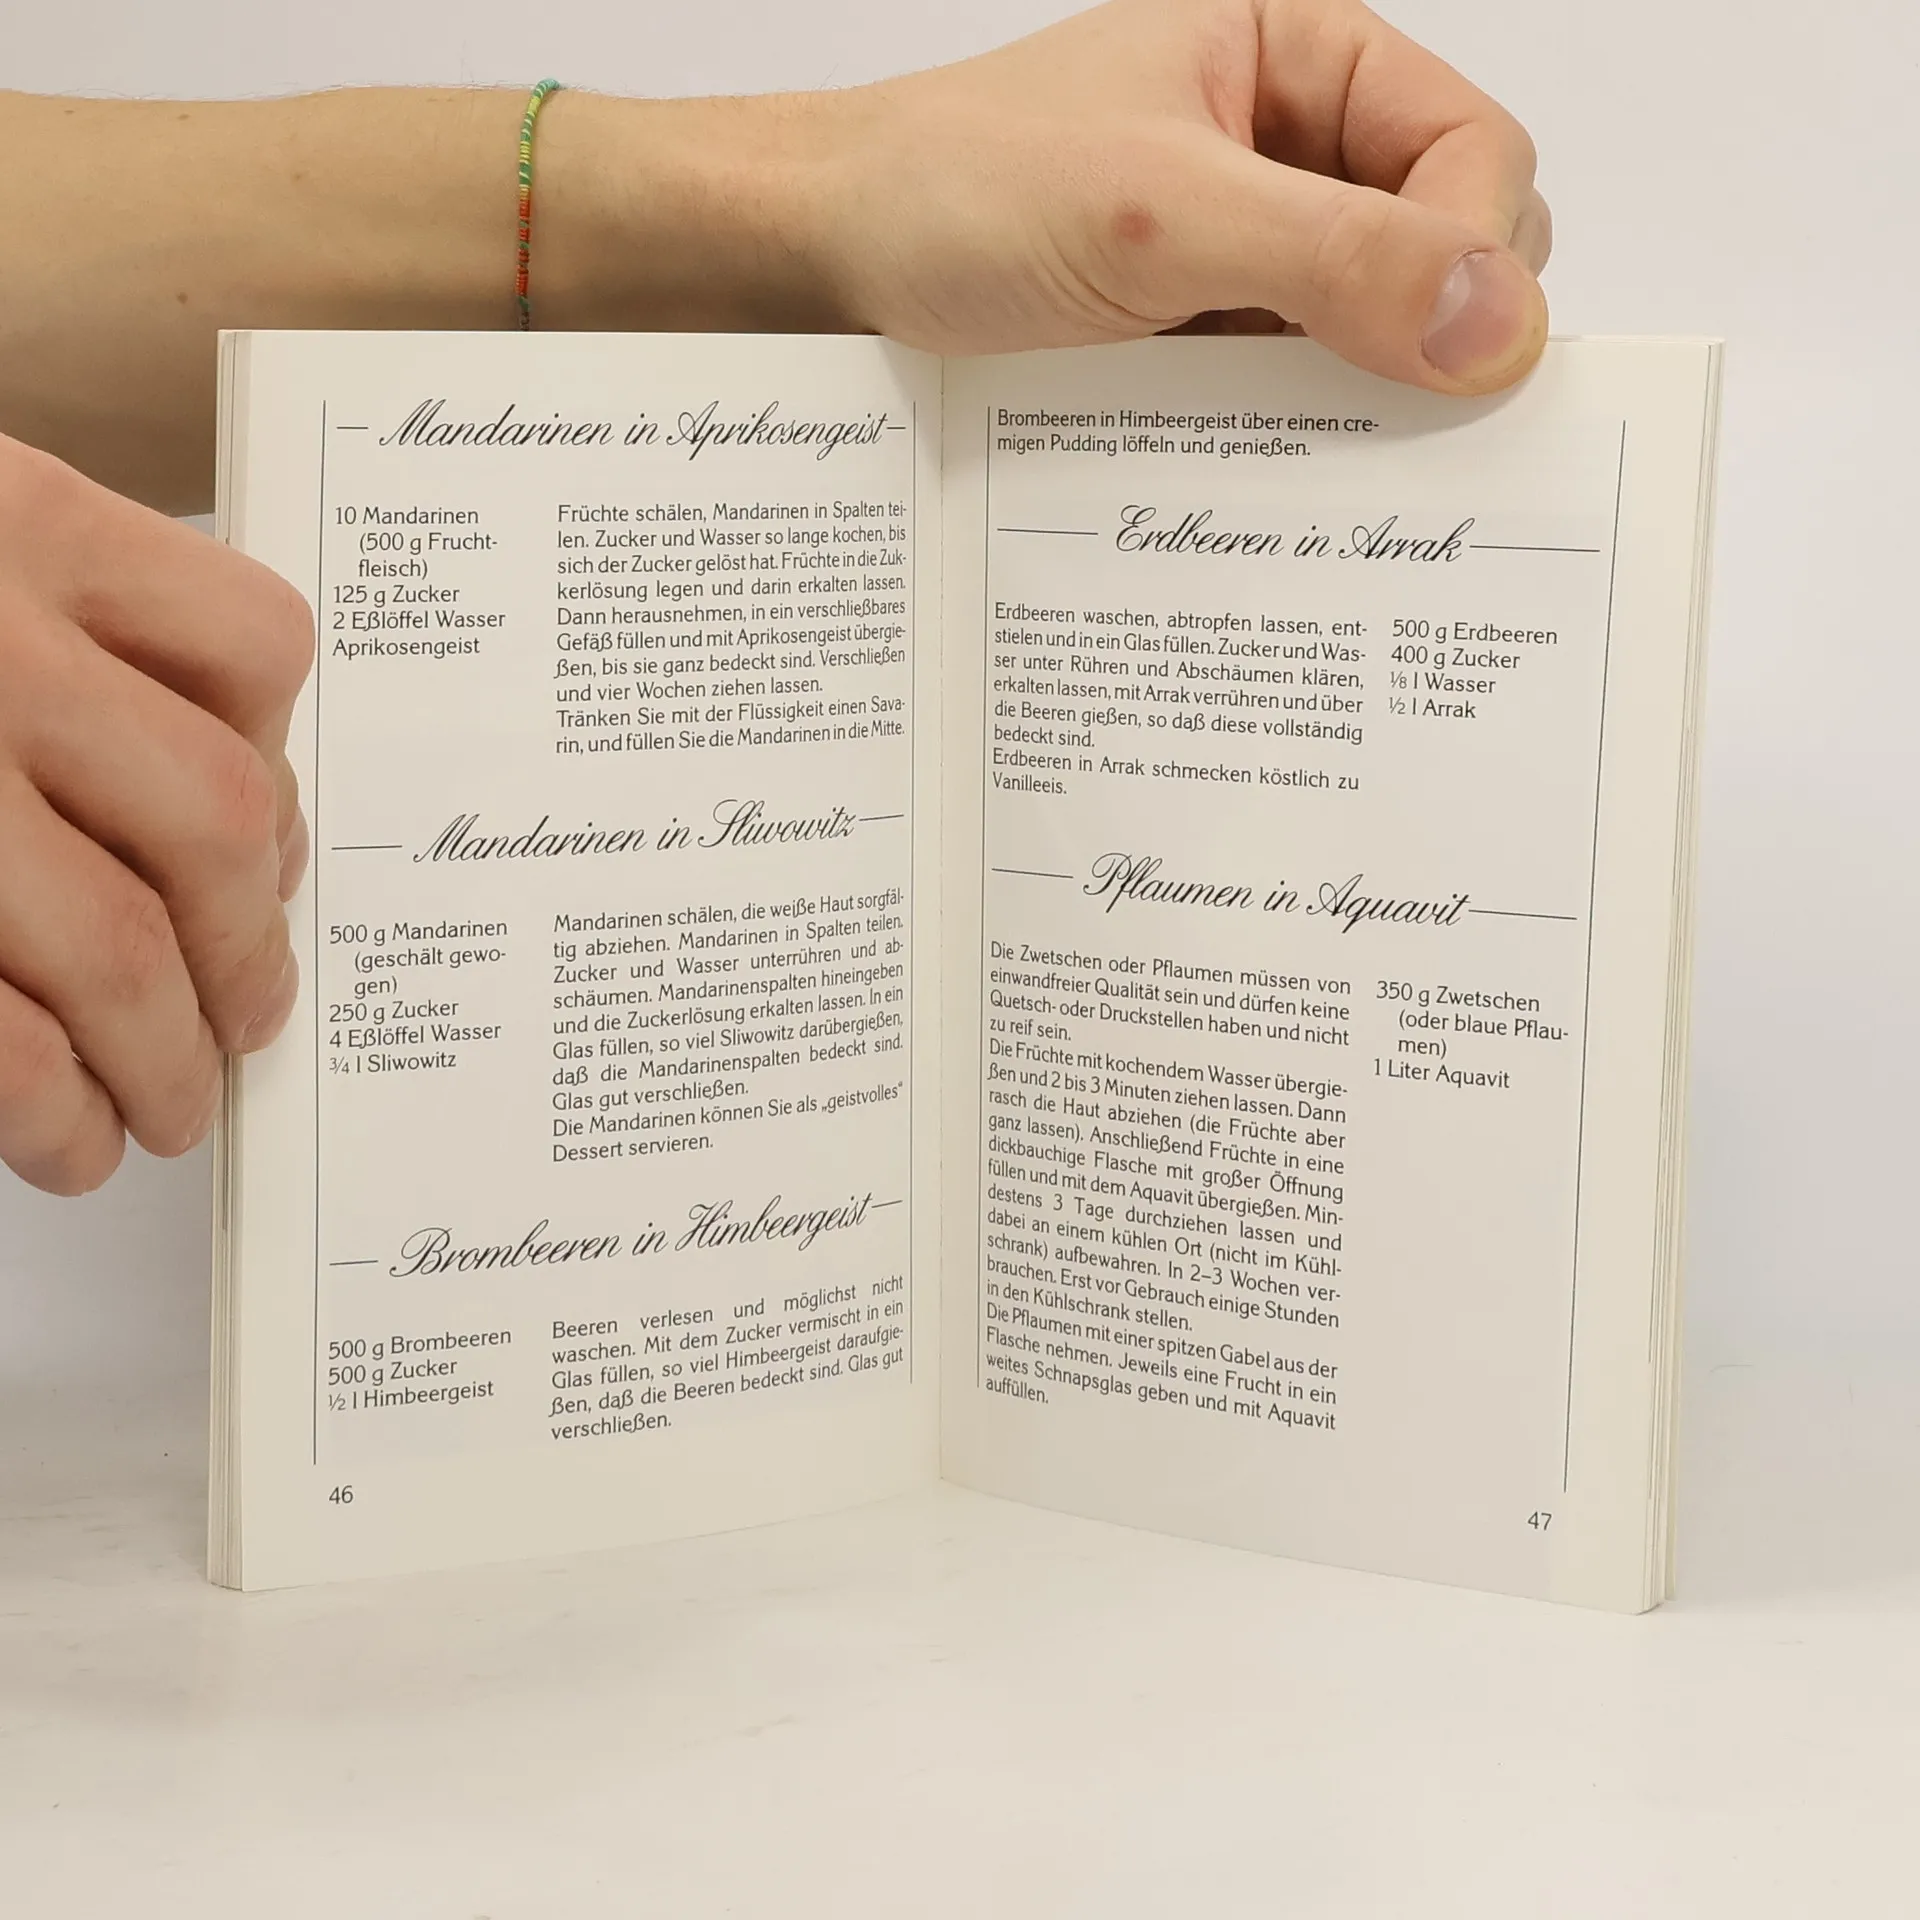 Mandarinen in Aprikosengeist
10 Mandarinen
(500 g Frucht-
fleisch)
125 g Zucker
2 Eßlöffel Wasser
Aprikosengeist
Früchte schälen, Mandarinen in Spalten tei-
len. Zucker und Wasser so lange kochen, bis
sich der Zucker gelöst hat. Früchte in die Zuk-
kerlösung legen und darin erkalten lassen.
Dann herausnehmen, in ein verschließbares
Gefäß füllen und mit Aprikosengeist übergie-
ßen, bis sie ganz bedeckt sind. Verschließen
und vier Wochen ziehen lassen.
Tränken Sie mit der Flüssigkeit einen Sava-
rin, und füllen Sie die Mandarinen in die Mitte.
Mandarinen in Sliwowitz
500 g Mandarinen
(geschält gewo-
gen)
250 g Zucker
4 Eßlöffel Wasser
¾ l Sliwowitz
Mandarinen schälen, die weiße Haut sorgfäl-
tig abziehen. Mandarinen in Spalten teilen.
Zucker und Wasser unterrühren und ab-
schäumen. Mandarinenspalten hineingeben
und die Zuckerlösung erkalten lassen. In ein
Glas füllen, so viel Sliwowitz darübergießen,
daß die Mandarinenspalten bedeckt sind.
Glas gut verschließen.
Die Mandarinen können Sie als „geistvolles“
Dessert servieren.
Brombeeren in Himbeergeist
500 g Brombeeren
500 g Zucker
½ l Himbeergeist
Beeren verlesen und möglichst nicht
waschen. Mit dem Zucker vermischt in ein
Glas füllen, so viel Himbeergeist daraufgie-
ßen, daß die Beeren bedeckt sind. Glas gut
verschließen.
46
Brombeeren in Himbeergeist über einen cre-
migen Pudding löffeln und genießen.
Erdbeeren in Arrak
Erdbeeren waschen, abtropfen lassen, ent-
stielen und in ein Glas füllen. Zucker und Was-
ser unter Rühren und Abschäumen klären,
erkalten lassen, mit Arrak verrühren und über
die Beeren gießen, so daß diese vollständig
bedeckt sind.
Erdbeeren in Arrak schmecken köstlich zu
Vanilleeis.
500 g Erdbeeren
400 g Zucker
⅛ l Wasser
½ l Arrak
Pflaumen in Aquavit
Die Zwetschen oder Pflaumen müssen von
einwandfreier Qualität sein und dürfen keine
Quetsch- oder Druckstellen haben und nicht
zu reif sein.
Die Früchte mit kochendem Wasser übergie-
ßen und 2 bis 3 Minuten ziehen lassen. Dann
rasch die Haut abziehen (die Früchte aber
ganz lassen). Anschließend Früchte in eine
dickbauchige Flasche mit großer Öffnung
füllen und mit dem Aquavit übergießen. Min-
destens 3 Tage durchziehen lassen und
dabei an einem kühlen Ort (nicht im Kühl-
schrank) aufbewahren. In 2–3 Wochen ver-
brauchen. Erst vor Gebrauch einige Stunden
in den Kühlschrank stellen.
Die Pflaumen mit einer spitzen Gabel aus der
Flasche nehmen. Jeweils eine Frucht in ein
weites Schnapsglas geben und mit Aquavit
auffüllen.
350 g Zwetschen
(oder blaue Pflau-
men)
1 Liter Aquavit
47